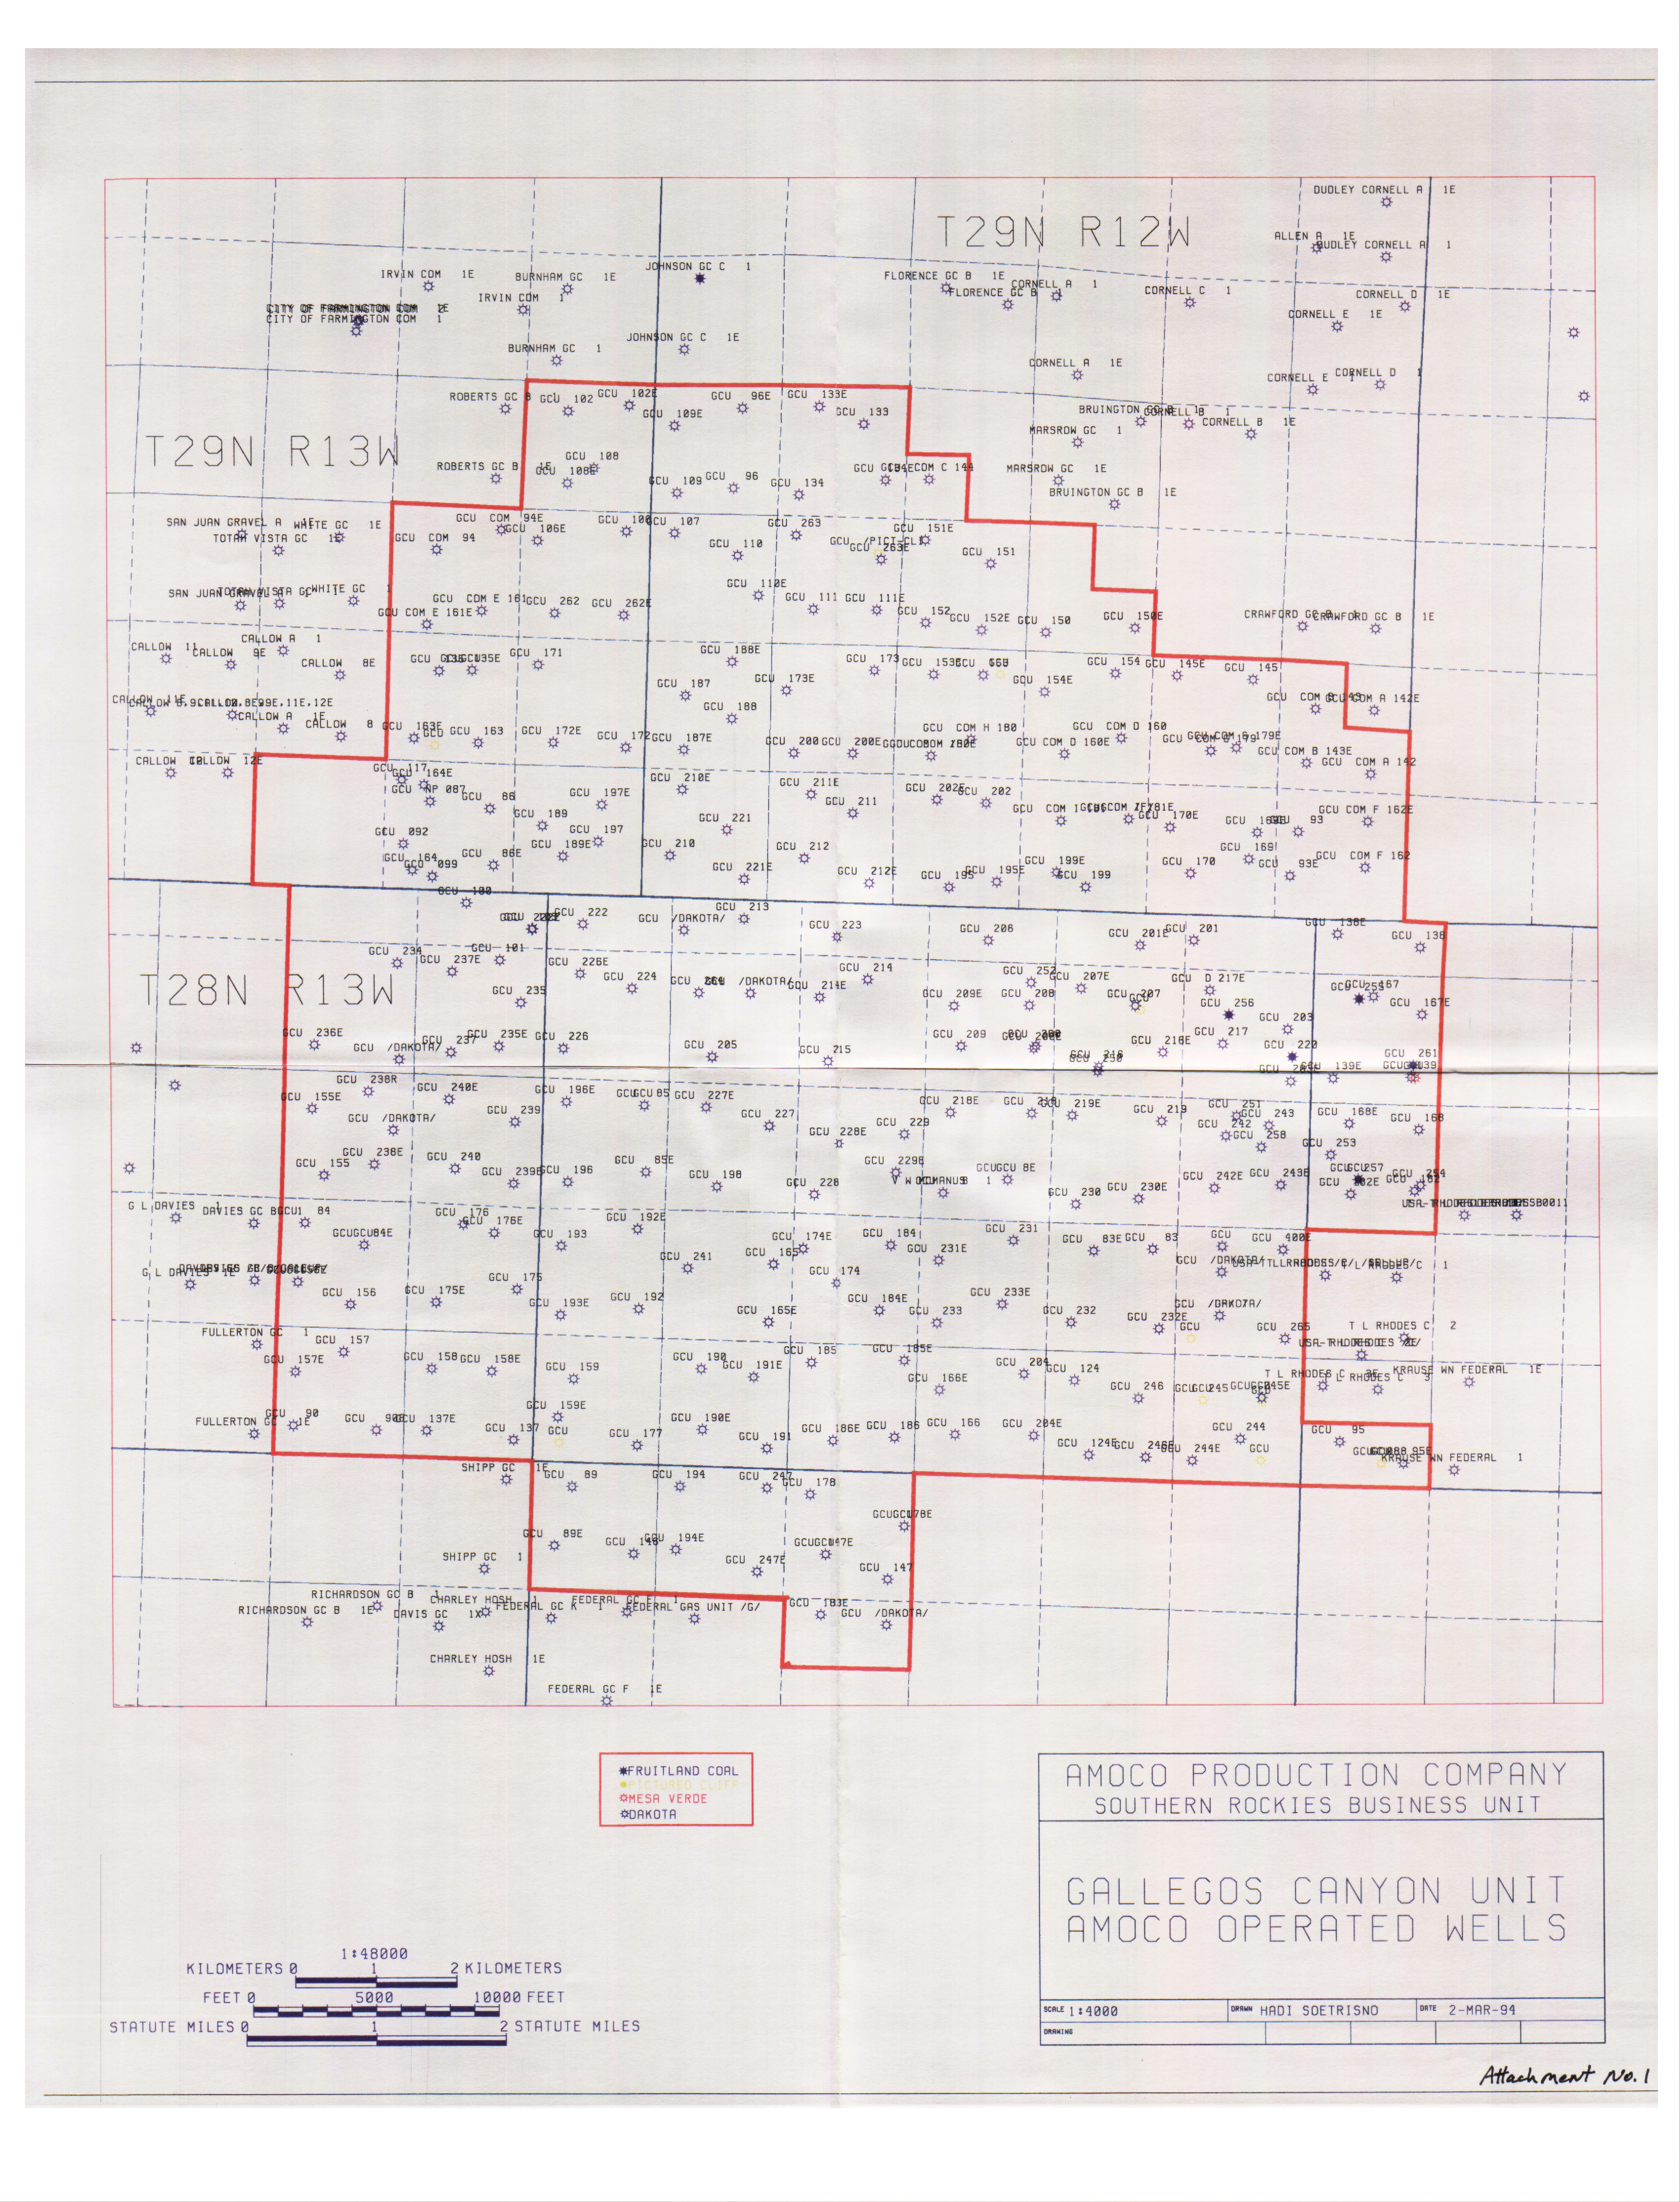 DUDLEY CORNELL A 1E
T29N R12W
ALLEN A 1E
DUDLEY CORNELL A 1
JOHNSON GC C 1
IRVIN COM 1E
BURNHAM GC 1E
FLORENCE GC B 1E
CORNELL A 1
FLORENCE GC B 1
CORNELL C 1
CORNELL D 1E
IRVIN COM 1
CITY OF FARMINGTON COM 1
CORNELL E 1E
JOHNSON GC C 1E
BURNHAM GC 1
CORNELL A 1E
CORNELL E 1
CORNELL D 1
ROBERTS GC B
GCU 102
GCU 102E
GCU 96E
GCU 133E
GCU 109E
GCU 133
BRUINGTON GC B 1
CORNELL B 1
CORNELL B 1E
MARSROW GC 1
T29N R13W
GCU 108
ROBERTS GC B 1E
GCU 108E
GCU 96
GCU 109
GCU 134
GCU 134E
GCU COM C 144
MARSROW GC 1E
BRUINGTON GC B 1E
SAN JUAN GRAVEL A 1E
WHITE GC 1E
TOTAH VISTA GC 1E
GCU COM 94
GCU COM 94E
GCU 106E
GCU 106
GCU 107
GCU 263
GCU 110
GCU /PICT-CL
GCU 263E
GCU 151E
GCU 151
SAN JUAN GRAVEL A 1
TOTAH VISTA GC 1
WHITE GC 1
GCU COM E 161
GCU COM E 161E
GCU 262
GCU 262E
GCU 110E
GCU 111
GCU 111E
GCU 152
GCU 152E
GCU 150
GCU 150E
CRAWFORD GC B 1
CRAWFORD GC B 1E
CALLOW 11
CALLOW 9E
CALLOW A 1
CALLOW 8E
GCU 135E
GCU 171
GCU 188E
GCU 187
GCU 173E
GCU 173
GCU 153E
GCU 153
GCU 154E
GCU 154
GCU 145E
GCU 145
CALLOW 11E
CALLOW A 1E
CALLOW 8
GCU 163E
GCU
GCU 163
GCU 172E
GCU 172
GCU 187E
GCU 188
GCU 200
GCU 200E
GCU COM H 180
GCU COM D 160E
GCU COM D 160
GCU COM G 179
GCU COM G 179E
GCU COM B 143
GCU COM A 142E
GCU COM B 143E
GCU COM A 142
CALLOW 12
CALLOW 12E
GCU 117
GCU 164E
GCU NP 087
GCU 86
GCU 197E
GCU 210E
GCU 211E
GCU 211
GCU 202E
GCU 202
GCU 170E
GCU 169E
GCU 93
GCU COM F 162E
GCU 092
GCU 189
GCU 189E
GCU 197
GCU 221
GCU 210
GCU 212
GCU 164
GCU 099
GCU 86E
GCU 221E
GCU 212E
GCU 195
GCU 195E
GCU 199E
GCU 199
GCU 170
GCU 169
GCU 93E
GCU COM F 162
GCU 180
GCU 222
GCU /DAKOTA/
GCU 213
GCU 223
GCU 206
GCU 201E
GCU 201
GCU 138E
GCU 138
GCU 234
GCU 237E
GCU 101
GCU 226E
GCU 224
GCU 264
GCU /DAKOTA/
GCU 214E
GCU 214
GCU 252
GCU 207E
GCU D 217E
T28N R13W
GCU 235
GCU 209E
GCU 208
GCU 207
GCU
GCU 256
GCU 255
GCU 167
GCU 167E
GCU 203
GCU 236E
GCU /DAKOTA/
GCU 237
GCU 235E
GCU 226
GCU 205
GCU 215
GCU 209
GCU 216E
GCU 217
GCU 220
GCU 261
GCU 139E
GCU 139
GCU 238R
GCU 155E
GCU 240E
GCU 239
GCU 196E
GCU 85
GCU 227E
GCU 227
GCU 218E
GCU 218
GCU 219E
GCU 219
GCU 251
GCU 243
GCU 242
GCU 258
GCU 168E
GCU 168
GCU /DAKOTA/
GCU 228E
GCU 229
GCU 253
GCU 155
GCU 238E
GCU 240
GCU 239E
GCU 196
GCU 85E
GCU 198
GCU 228
GCU 229E
GCU 8E
GCU 230
GCU 230E
GCU 242E
GCU 243E
GCU 257
GCU 254
G L DAVIES 1
DAVIES GC B
GCU 84
GCU 84E
GCU 176
GCU 176E
GCU 193
GCU 192E
GCU 241
GCU 165
GCU 174E
GCU 184
GCU 231E
GCU 231
GCU 83E
GCU 83
GCU
GCU 400E
GCU /DAKOTA/
G L DAVIES 1E
GCU 156
GCU 175E
GCU 175
GCU 193E
GCU 192
GCU 174
GCU 165E
GCU 184E
GCU 233
GCU 233E
GCU 232
GCU 232E
GCU /DAKOTA/
GCU
GCU 265
T L RHODES C 2
FULLERTON GC 1
GCU 157
GCU 157E
GCU 158
GCU 158E
GCU 159
GCU 190
GCU 191E
GCU 185
GCU 185E
GCU 166E
GCU 204
GCU 124
GCU 246
GCU 245
GCU 245E
T L RHODES C 3E
T L RHODES C 3
KRAUSE WN FEDERAL 1E
FULLERTON GC 1E
GCU 90
GCU 90E
GCU 137E
GCU 137
GCU 159E
GCU
GCU 177
GCU 190E
GCU 191
GCU 186E
GCU 186
GCU 166
GCU 204E
GCU 124E
GCU 246E
GCU 244E
GCU 244
GCU
GCU 95
GCU 95E
KRAUSE WN FEDERAL 1
SHIPP GC 1E
GCU 89
GCU 194
GCU 247
GCU 178
GCU 178E
GCU 89E
GCU 146
GCU 194E
GCU 247E
GCU 147E
GCU 147
SHIPP GC 1
RICHARDSON GC B 1
RICHARDSON GC B 1E
CHARLEY HOSH 1
DAVIS GC 1X
FEDERAL GC K 1
FEDERAL GC F 1
FEDERAL GAS UNIT /G/
GCU 183E
GCU /DAKOTA/
CHARLEY HOSH 1E
FEDERAL GC F 1E
FRUITLAND COAL
PICTURED CLIFF
MESA VERDE
DAKOTA
AMOCO PRODUCTION COMPANY
SOUTHERN ROCKIES BUSINESS UNIT
GALLEGOS CANYON UNIT
AMOCO OPERATED WELLS
SCALE 1:4000
DRAWN HADI SOETRISNO
DATE 2-MAR-94
DRAWING
1:48000
KILOMETERS 0 1 2 KILOMETERS
FEET 0 5000 10000 FEET
STATUTE MILES 0 1 2 STATUTE MILES
Attachment No. 1